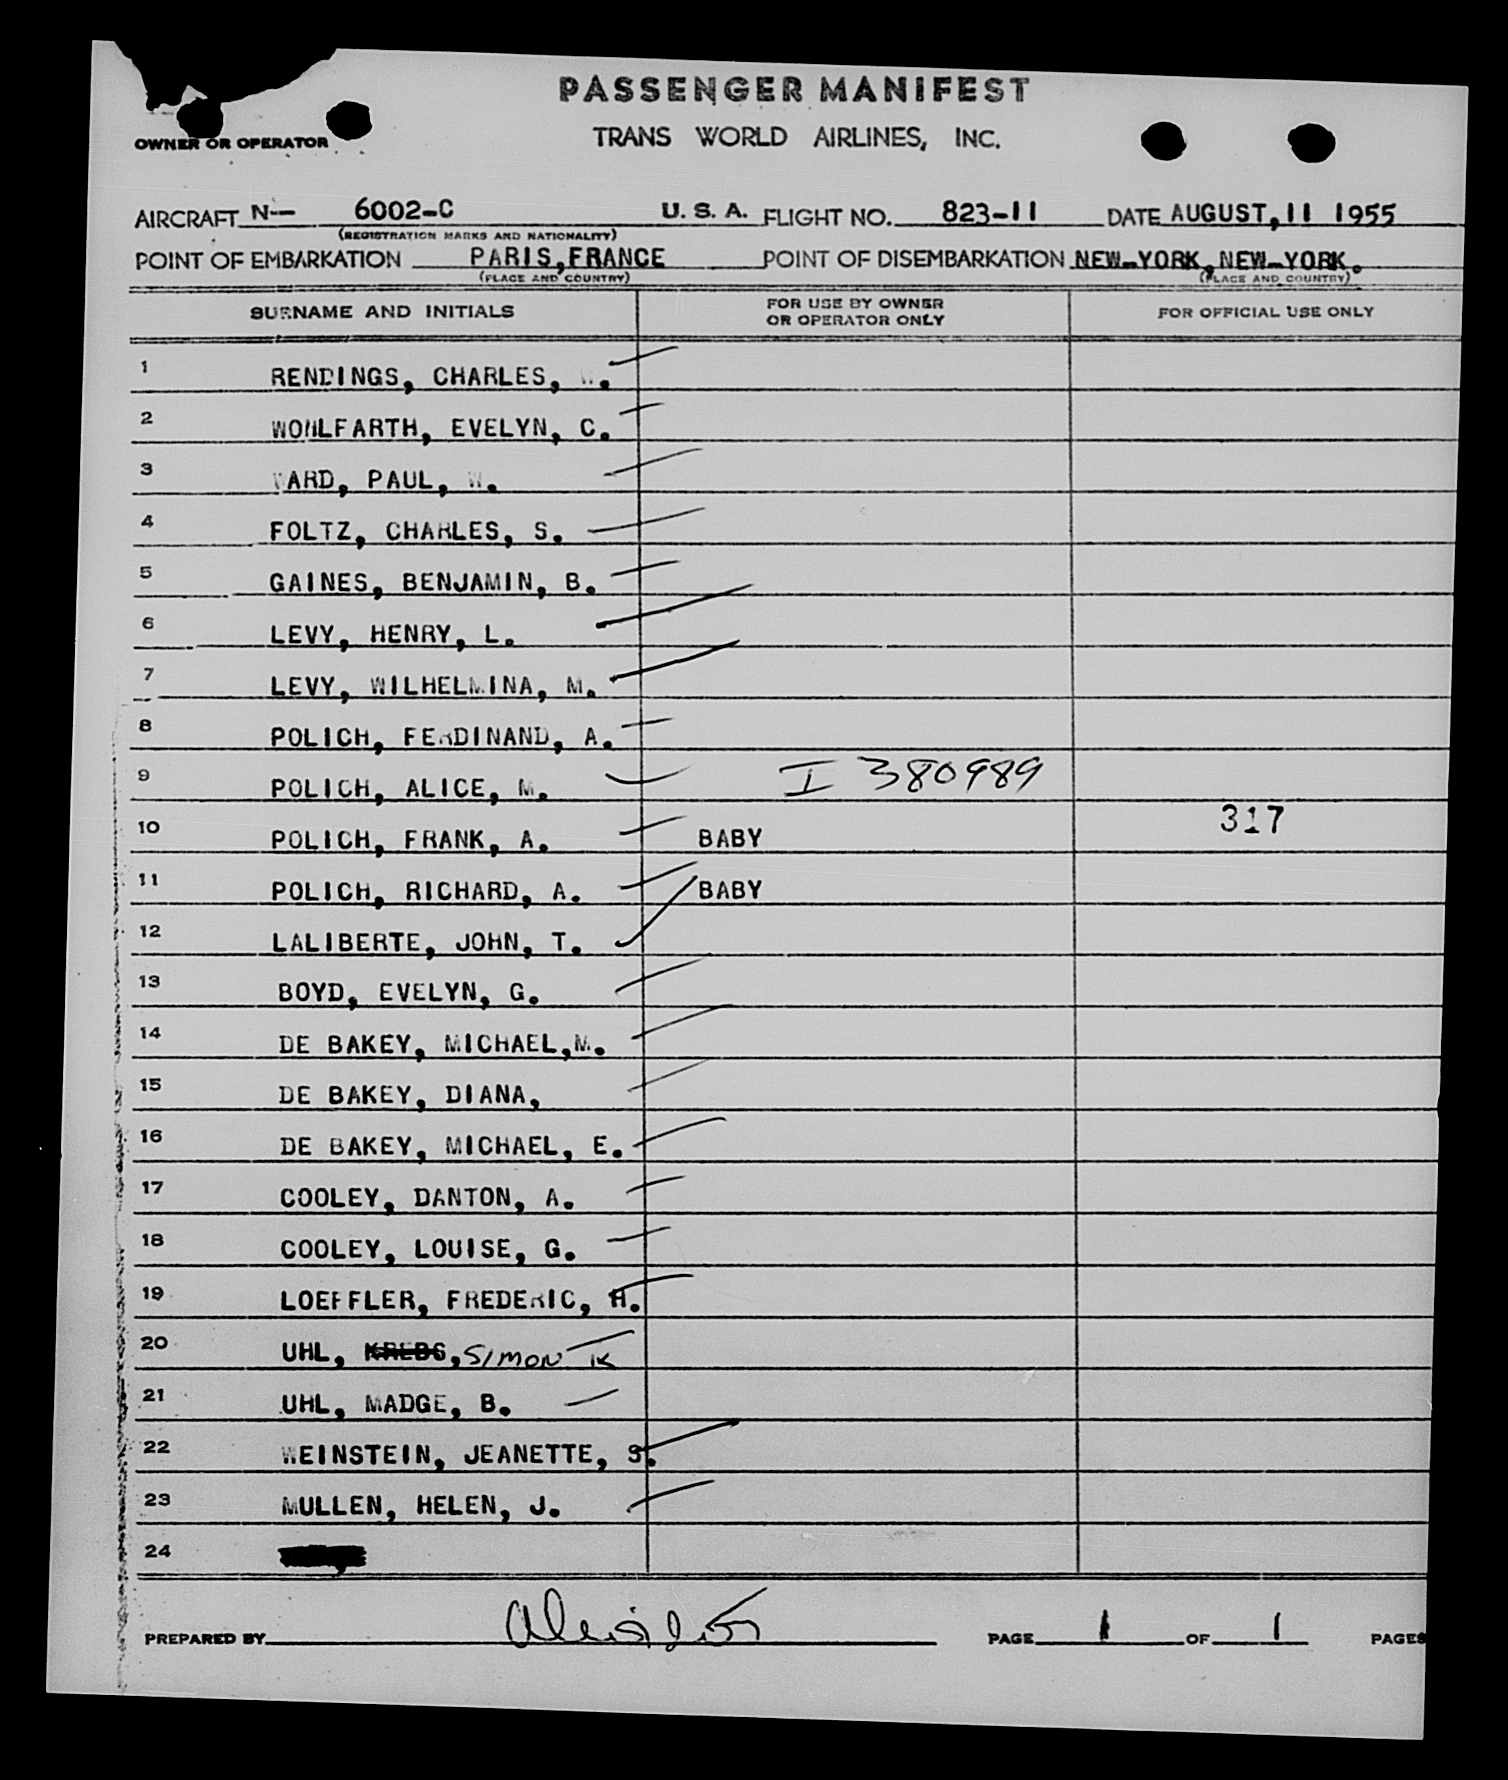 PASSENGER MANIFEST
OWNER OR OPERATOR TRANS WORLD AIRLINES, INC.
AIRCRAFT N-- 6002-C U. S. A. FLIGHT NO. 823-11 DATE AUGUST, 11 1955
(REGISTRATION MARKS AND NATIONALITY)
POINT OF EMBARKATION PARIS,FRANCE POINT OF DISEMBARKATION NEW-YORK, NEW-YORK.
(PLACE AND COUNTRY) (PLACE AND COUNTRY)
SURNAME AND INITIALS FOR USE BY OWNER OR OPERATOR ONLY FOR OFFICIAL USE ONLY
1 RENDINGS, CHARLES, W.
2 WOHLFARTH, EVELYN, C.
3 WARD, PAUL, W.
4 FOLTZ, CHARLES, S.
5 GAINES, BENJAMIN, B.
6 LEVY, HENRY, L.
7 LEVY, WILHELMINA, M.
8 POLICH, FERDINAND, A.
9 POLICH, ALICE, M. I 380989
10 POLICH, FRANK, A. BABY 317
11 POLICH, RICHARD, A. BABY
12 LALIBERTE, JOHN, T.
13 BOYD, EVELYN, G.
14 DE BAKEY, MICHAEL,M.
15 DE BAKEY, DIANA,
16 DE BAKEY, MICHAEL, E.
17 COOLEY, DANTON, A.
18 COOLEY, LOUISE, G.
19 LOEFFLER, FREDERIC, H.
20 UHL, KREBS, SIMON K
21 UHL, MADGE, B.
22 WEINSTEIN, JEANETTE, S.
23 MULLEN, HELEN, J.
24
PREPARED BY PAGE 1 OF 1 PAGES